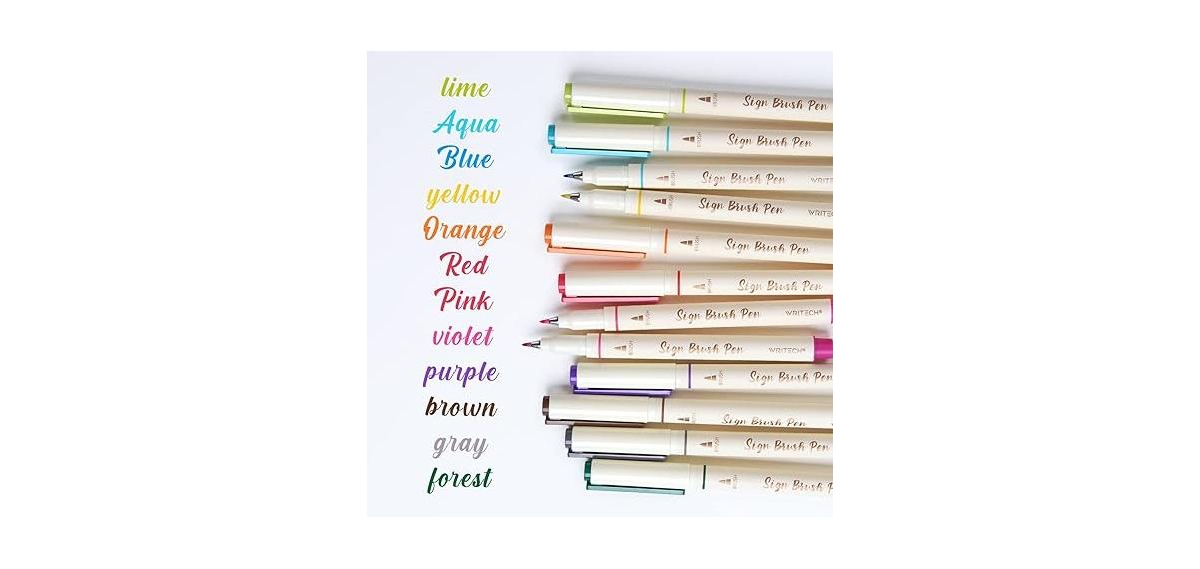 lime
Aqua
Blue
yellow
Orange
Red
Pink
violet
purple
brown
gray
forest
BRUSH Sign Brush Pen
BRUSH Sign Brush Pen
BRUSH Sign Brush Pen WRITE
BRUSH Sign Brush Pen WRITEC
BRUSH Sign Brush Pen
BRUSH Sign Brush Pen
BRUSH Sign Brush Pen WRITECH®
BRUSH Sign Brush Pen WRITECH®
BRUSH Sign Brush Pen
Sign Brush Pen
BRUSH Sign Brush Pen
BRUSH Sign Brush P